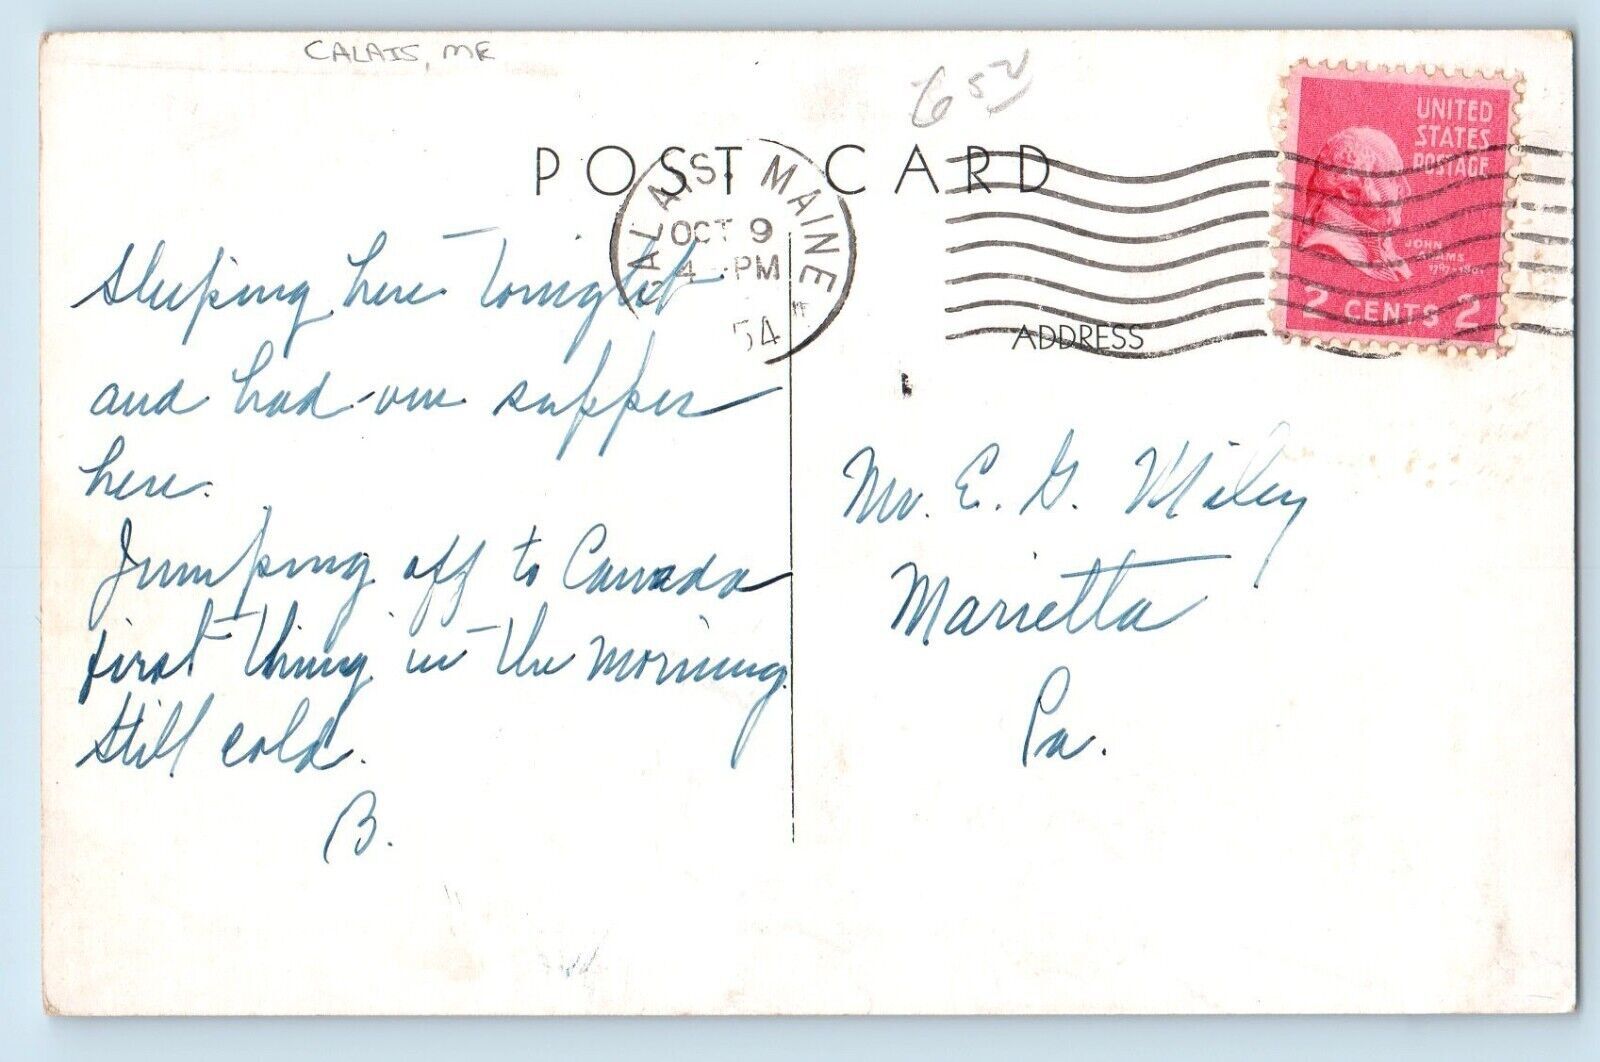 CALAIS, ME
6 50
POST CARD
CALAIS. MAINE
OCT 9
4 - PM
54
UNITED
STATES
POSTAGE
JOHN
ADAMS
2 CENTS 2
ADDRESS
Sleeping here Tonight
and had our supper
here.
Jumping off to Canada
first thing in the morning.
Still cold.
B.
Mr. E. G.
Marietta
Pa.